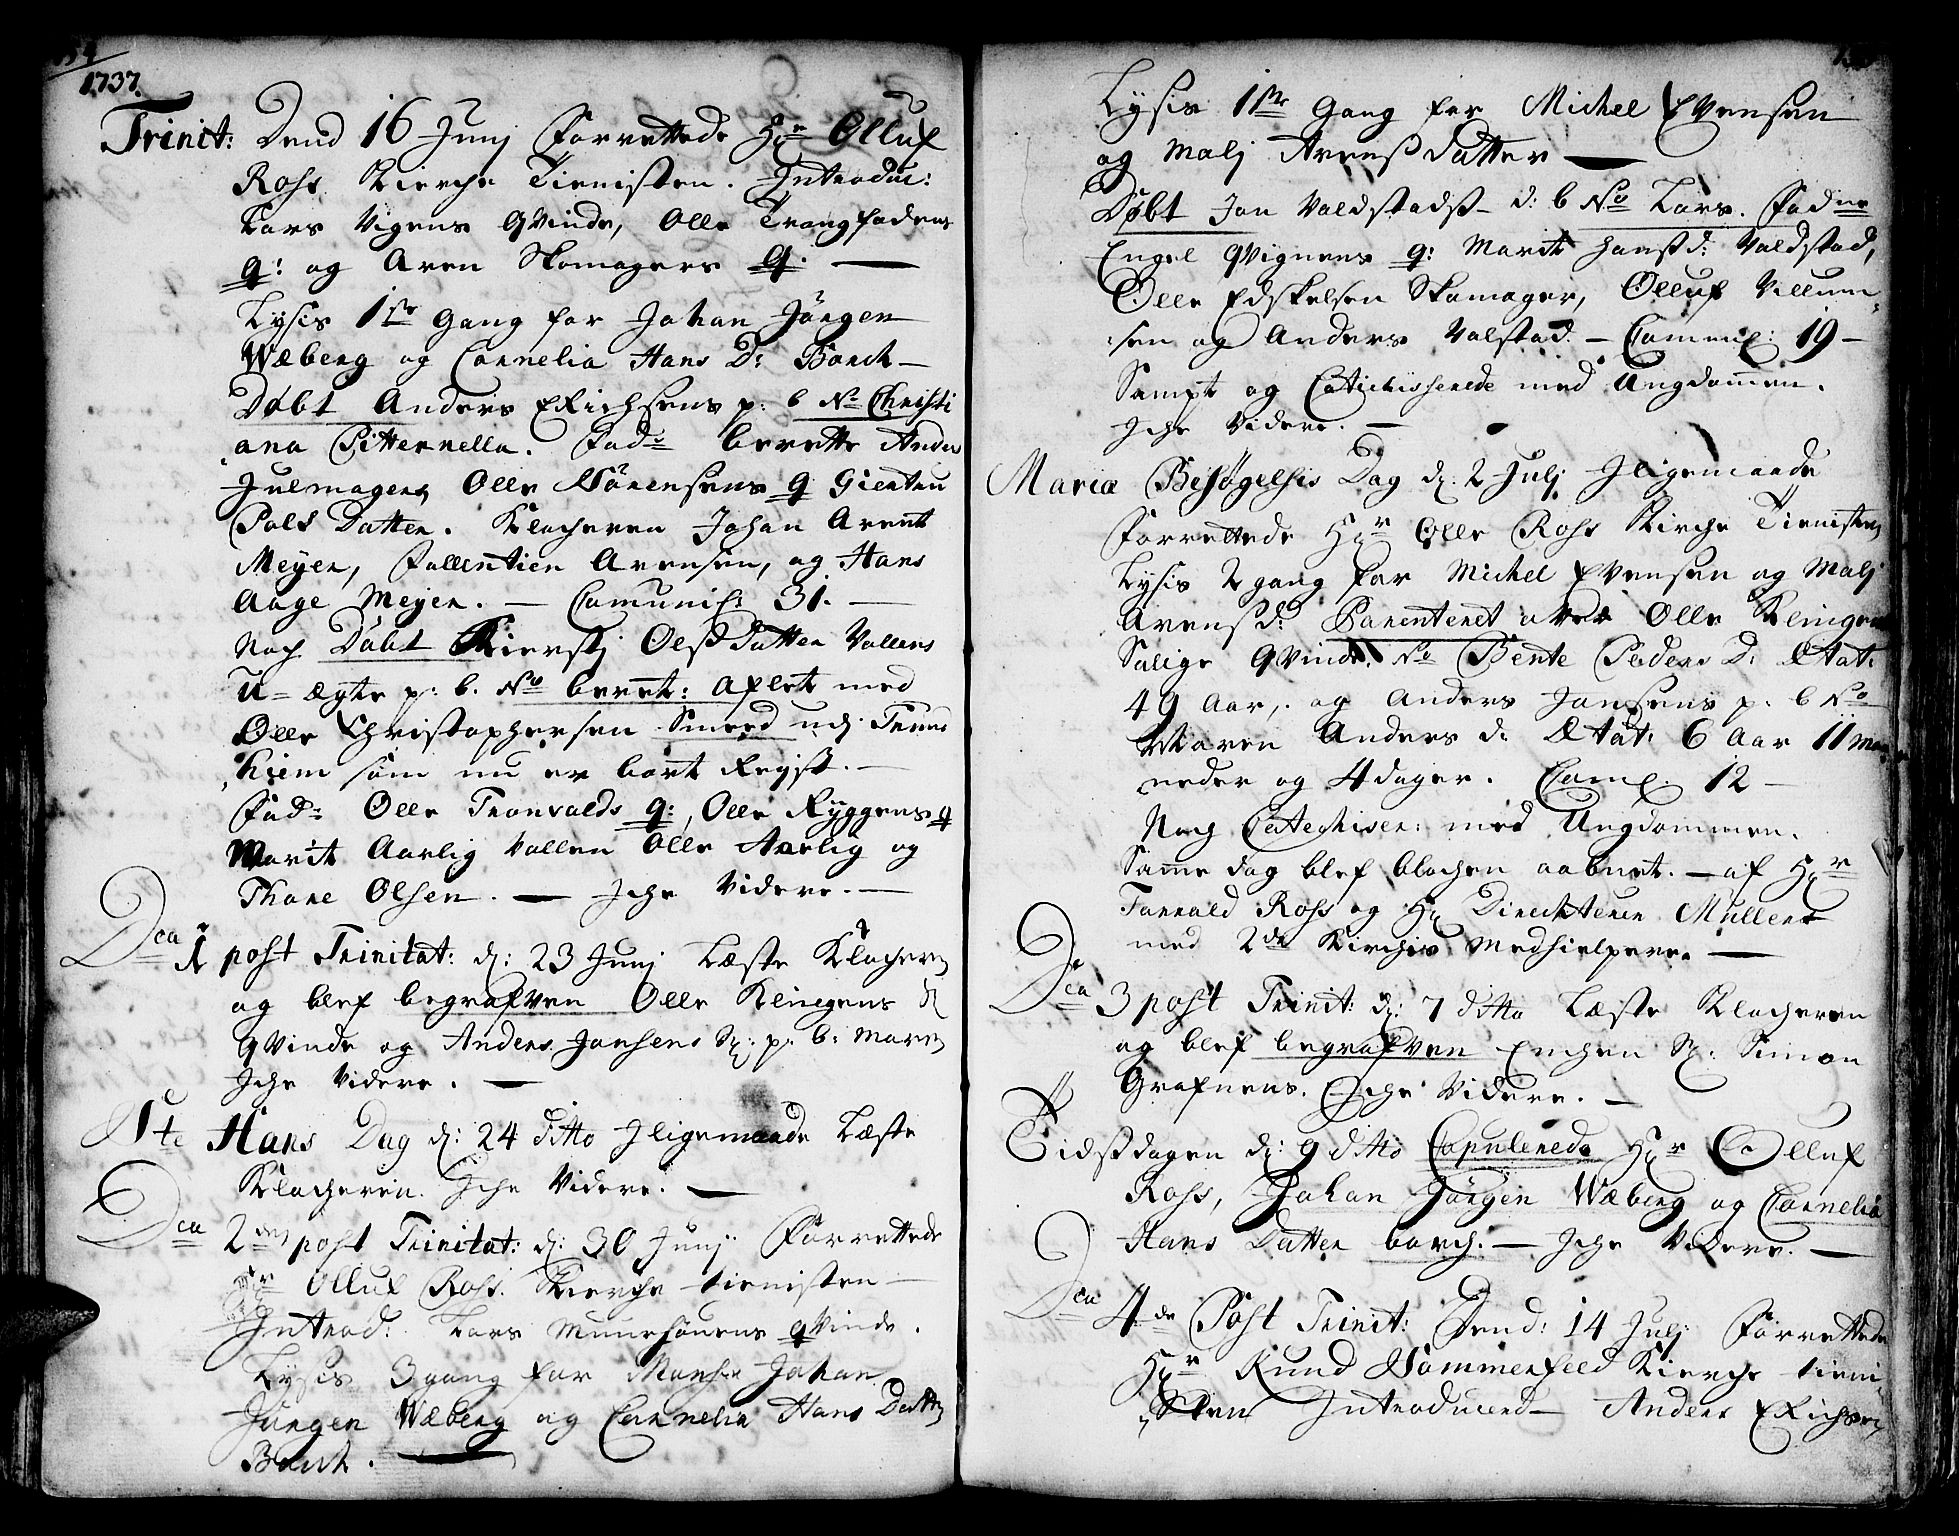 1737.
Trinit: Dend 16 Junj Forrettede Hr Olluf
Ross Kierche Tienisten. Introduc:
Lars Vigens Qvinde, Olle Trangfodens
q: og Aren Skomagers q. —
Lysis 1ste gang for Johan Jörgen
Wæberg og Cornelia Hans D: Borch —
Døbt Anders Erichsens p: b No Christi
ana Pitternella. Fad: berette Anders
Julmagers Olle Sörensens q Giertru
Pols Datter. Klocheren Johan Arent
Meyer, Fallentien Arensen, og Hans
Aage Meyer. — Comunic: 31. —
Noch Döbt Kierstj Olsdatter Vollens
U-ægte p: b. No beret: aflet med
Olle Christophersen Smeed udj
hiem som nu er bort Reyst. —
Fad: Olle Tronvolds q:, Olle Ryggens q
Marit Aarlig Vollen Olle Aarlig og
Thore Olsen. — Iche Videre. —
Dca 1 post Trinitat: d: 23 Junj Læste Klocheren
og blef begrafven Olle Klingens
qvinde og Anders Jonsens p: b: Maren
Iche Videre. —
Ste Hans Dag d: 24 ditto Iligemaade Læste
Klocheren. Iche Videre. —
Dca 2den post Trinitat: d: 30 Junj Forrettede
Hr Olluf Ross. Kierche tienisten —
Introd: Lars Muursönens qvinde.
Lysis 3 gang for Johan
Jurgen Wæberg og Cornelia Hans Datter
Borch. —
Lysis 1ste Gang for Michel Evensen
og Malj Arensdatter —
Døbt Jon Valdstads d: b No Lars. Fadne
Engel qvignens q: Marit Hansd: Valdstad,
Olle Edskelsen Skomager, Olluf Villum-
sen og Anders Valstad. — Comunic: 19 —
Sampt og Catichisserede med Ungdommen.
Iche Videre. —
Mariæ Besøgelsis Dag d: 2 Julj Iligemaade
Forrettede Hr Olle Ross Kirche Tienisten
Lysis 2 gang for Michel Evensen og Malj
Arensd: Parenteret over Olle Klingens
Salige qvinde No Bente Peders D: Ætat:
49 Aar, og Anders Jonsens p. b No
Maren Anders d: Ætat: 6 Aar 11 Ma-
neder og 4 dager. Com: 12 —
Noch Catechiser: med Ungdommen.
Samme dag blef blochen aabnet. — af Hr
Torvald Ross og Hr Direchteur Müller
med 2de Kirchis Medhielpere. —
Dca 3 post Trinit: d: 7 ditto Læste Klocheren
og blef begrafven Enchen Simon
Grafnens. Iche Videre. —
Tidsdagen d: 9 ditto Copulerede Hr Olluf
Ross, Johan Jörgen Wæberg og Cornelia
Hans Datter borch. — Iche Videre. —
Dca 4de Post Trinit: Dend: 14 Julj Forrettede
Hr Knud Sommerfeld Kierche tieni-
sten Introducered — Anders Erichsen